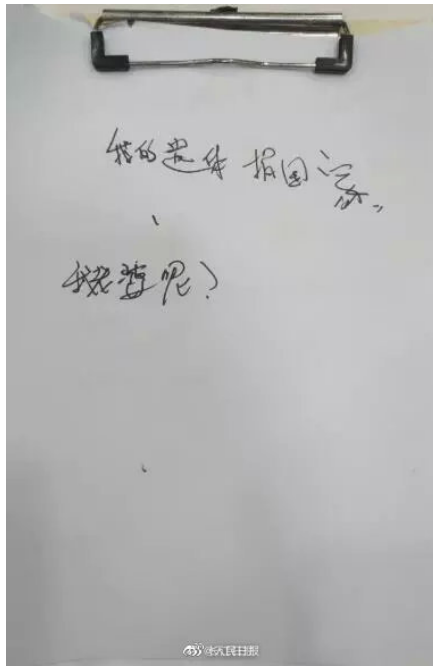 我的遗体捐国家
我老婆呢?
@人民日报